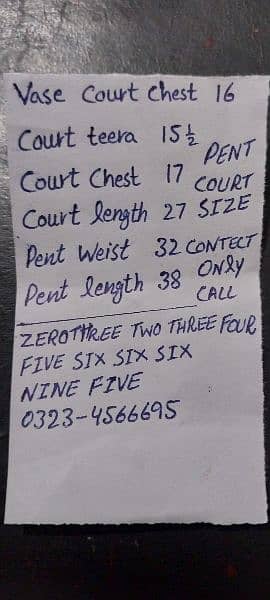 Vase Court Chest 16
Court teera 15½
Court Chest 17
Court length 27
Pent Weist 32
Pent length 38
PENT
COURT
SIZE
CONTECT
ONLY
CALL
ZEROTHREE TWO THREE FOUR
FIVE SIX SIX SIX
NINE FIVE
0323-4566695